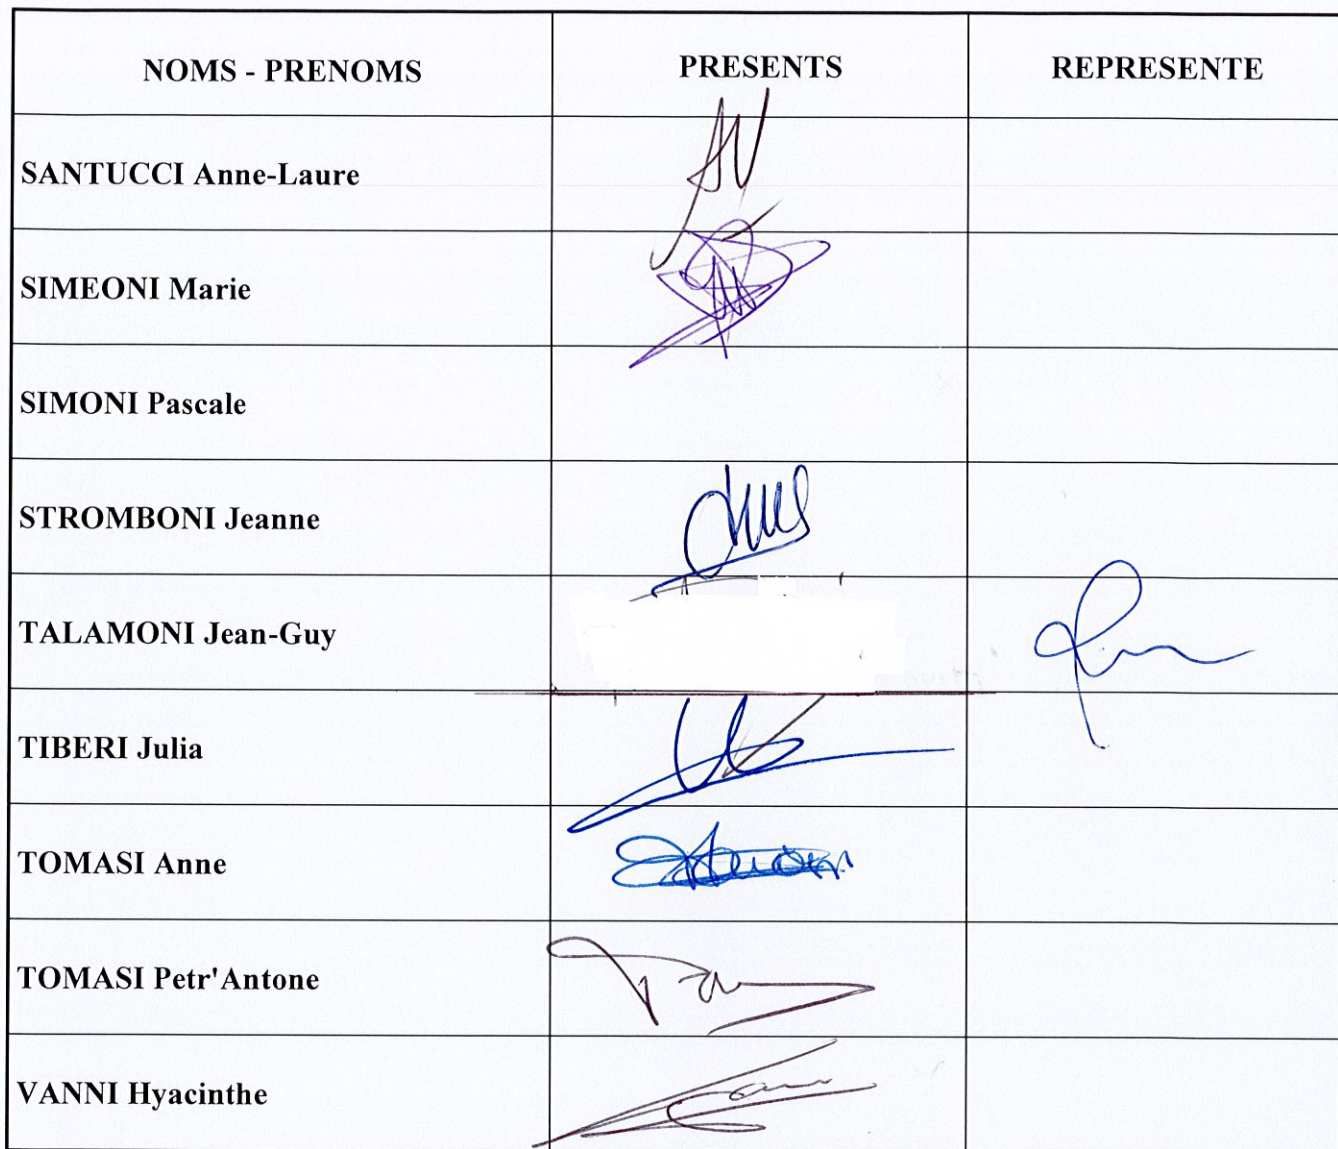 NOMS - PRENOMS PRESENTS REPRESENTE
SANTUCCI Anne-Laure
SIMEONI Marie
SIMONI Pascale
STROMBONI Jeanne
TALAMONI Jean-Guy
TIBERI Julia
TOMASI Anne
TOMASI Petr'Antone
VANNI Hyacinthe